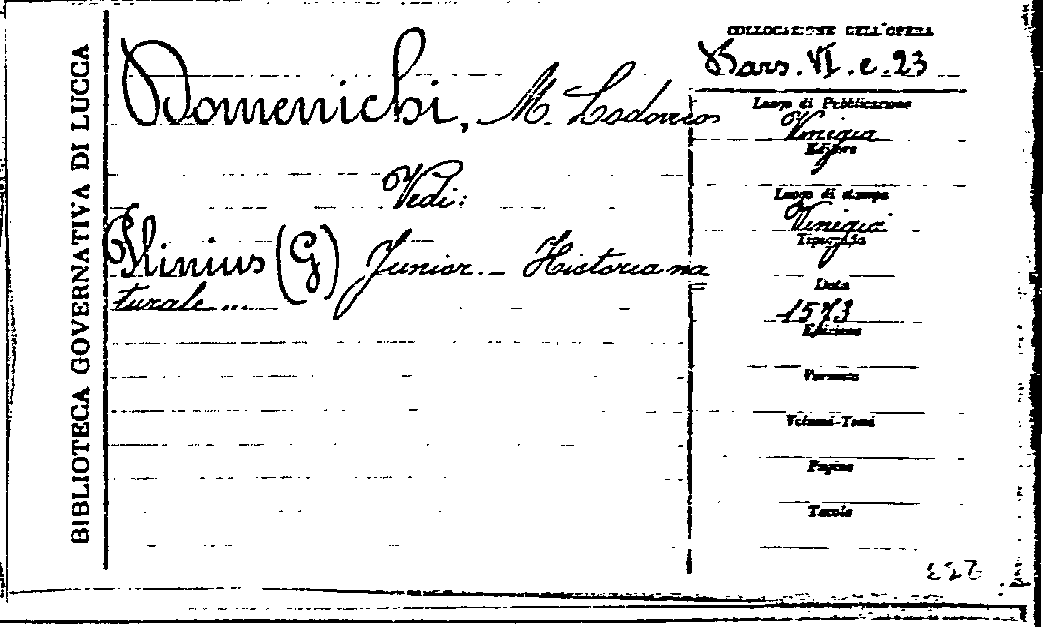 BIBLIOTECA GOVERNATIVA DI LUCCA
Domenichi, M. Lodovico
Vedi:
Plinius (G) Junior. - Historia na=
turale ...
COLLOCAZIONE DELL'OPERA
Bars. VI. c. 23
Luogo di Pubblicazione
Vinegia
Editore
Luogo di stampa
Vinegia
Tipografia
Data
1573
Edizione
Formato
Volumi-Tomi
Pagine
Tavole